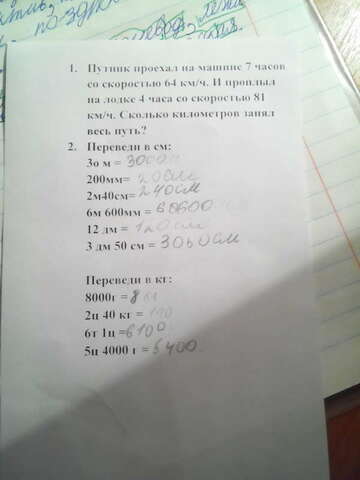 1. Путник проехал на машине 7 часов
со скоростью 64 км/ч. И проплыл
на лодке 4 часа со скоростью 81
км/ч. Сколько километров занял
весь путь?
2. Переведи в см:
3о м = 3000
200мм= 20см
2м40см= 240см
6м 600мм = 60600
12 дм = 120см
3 дм 50 см = 3050см
Переведи в кг:
8000г = 8 кг
2ц 40 кг =
6т 1ц = 6100
5ц 4000 г = 5400